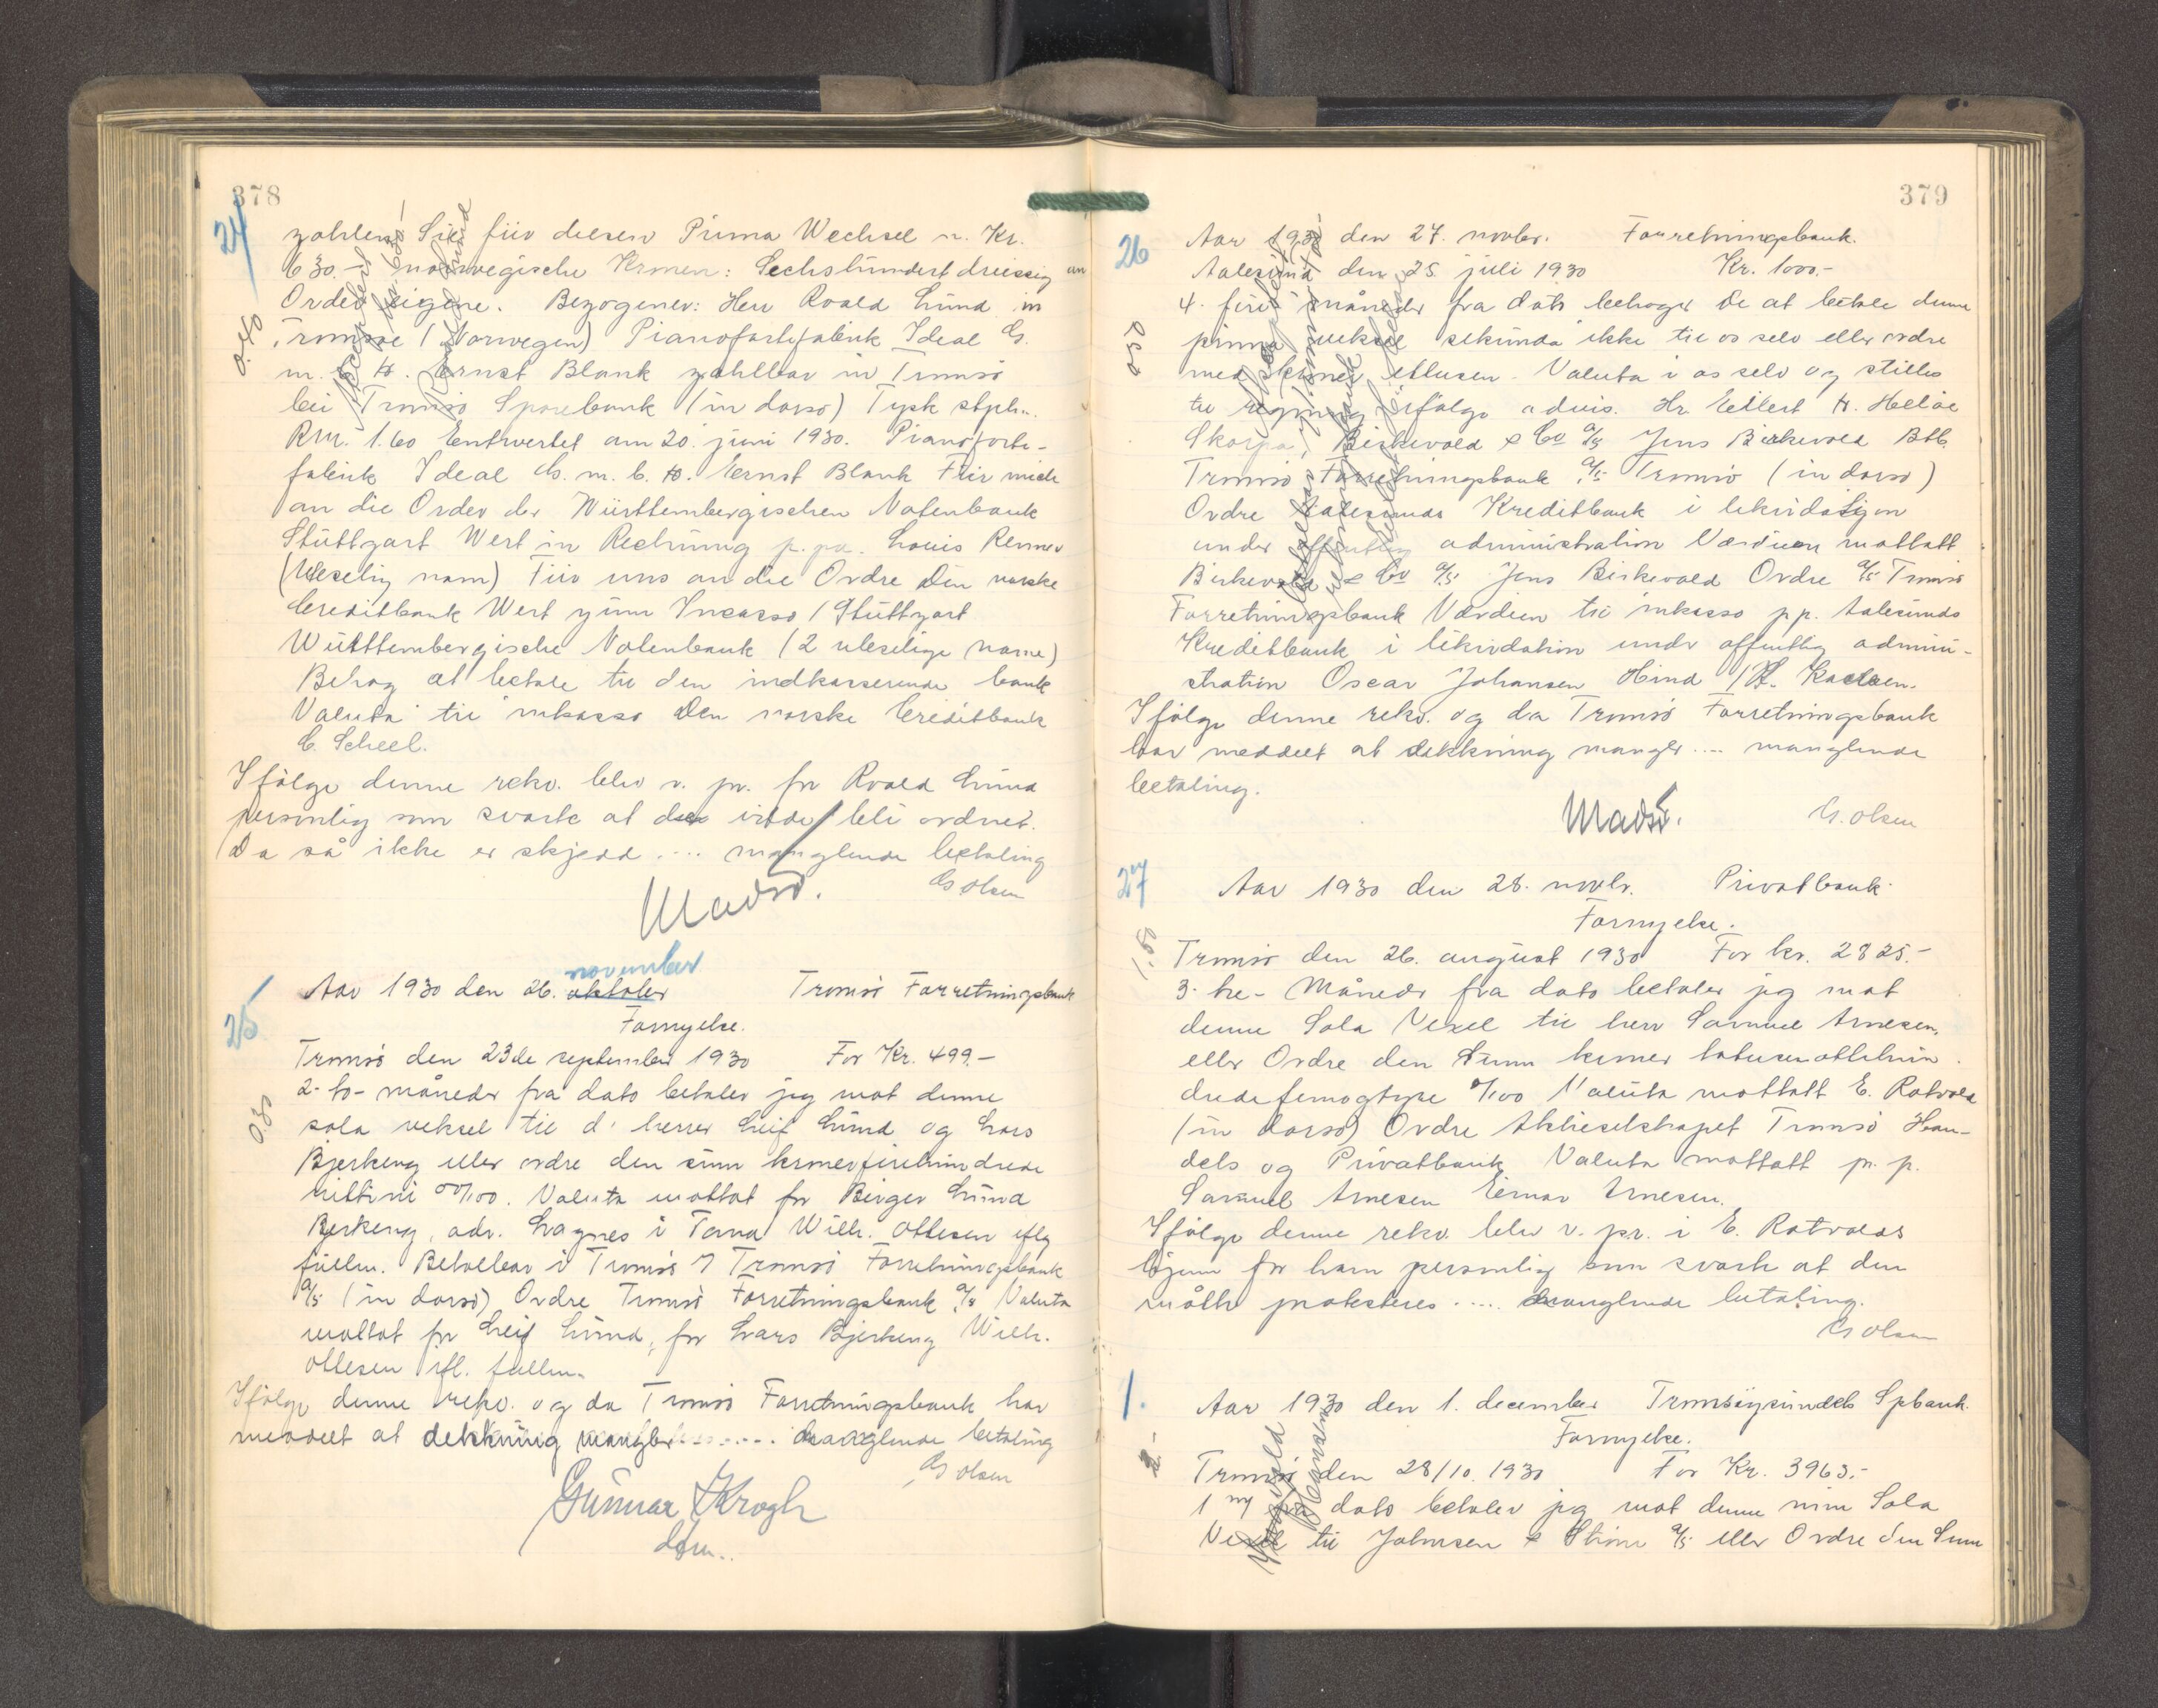 378
24
zahlen Sie für diesen Prima Wechsel n. Kr.
630.- norwegische Kronen: Sechshundert dreissig an
Order eigene. Bezogener: Herr Roald Lund in
0.40
Tromsøe (Norwegen) Pianofortefabrik Ideal G.
m. b. H. Ernst Blank zahlbar in Tromsö
bei Tromsö Sparebank (in dorso) Tysk stpl.
Rm. 1.60 Entwertet am 20. juni 1930. Pianoforte-
fabrik Ideal G. m. b. H. Ernst Blank Für mich
an die Order der Württembergischen Notenbank
Stuttgart Wert in Rechnung p. pa. Louis Renner
(Uleselig navn) Für uns an die Ordre Den norske
Creditbank Wert zum Incasso / Stuttgart
Württembergische Notenbank (2 uleselige navne)
Behag at betale til den indkasserende bank
Valuta til inkasso Den norske Creditbank
C. Scheel.
Ifölge denne rekv. blev v. pr. for Roald Lund
personlig som svarte at den vilde bli ordnet.
Da så ikke er skjedd .... manglende betaling
G Olsen
Madsö.
november
25
Aar 1930 den 26. oktober Tromsö Forretningsbank
Fornyelse.
Tromsö den 23de september 1930 For Kr. 499.-
2- to- måneder fra dato betaler jeg mot denne
0.80
sola veksel til d' herrer Leif Lund og Lars
Bjerkeng eller ordre den sum kroner firehundrede
nittini 00/100. Valuta mottat for Birger Lund
Bjerkeng, adr. Langnes i Tana Wilh. Ottesen eflg
fullm. Betalbar i Tromsö I Tromsö Forretningsbank
A/S (in dorso) Ordre Tromsö Forretningsbank A/S Valuta
mottat for Leif Lund, for Lars Bjerkeng Wilh.
Ottesen ifl. fullm.
Ifölge denne rekv. og da Tromsö Forretningsbank har
meddelt at dekkning mangler........ manglende betaling
G Olsen
Gunnar Krogh
379
26
Aar 1930 den 27. novbr. Forretningsbank.
Aalesund den 25 juli 1930 Kr. 1000.-
4- fire måneder fra dato behager De at betale denne
0.80
prima veksel sekunda ikke til os selv eller ordre
med kroner ettusen - Valuta i os selv og stilles
til regning ifölge advis. Hr. Eilert H. Heløe
Skorpa, Birkevold & Co A/S Jens Birkevold Btb.
Tromsö Forretningsbank A/S Tromsö (in dorso)
Ordre Aalesunds Kreditbank i likvidation
under offentlig administration Værdien mottatt
Birkevold & Co A/S Jens Birkevold Ordre A/S Tromsö
Forretningsbank Værdien til inkasso pp. Aalesunds
Kreditbank i likvidation under offentlig admini-
stration Oscar Johansen Hind
Ifölge denne rekv. og da Tromsö Forretningsbank
har meddelt at dekkning mangler .... manglende
betaling.
Madsö. G. Olsen
27
Aar 1930 den 28. novbr. Privatbank.
Fornyelse.
Tromsö den 26. august 1930 For kr. 2825.-
3- tre- Måneder fra dato betaler jeg mot
denne Sola Vexel til herr Samuel Arnesen.
eller Ordre den Sum kroner totusenottehun-
dredefemogtyve 0/100 Valuta mottatt E. Rotvold
(in dorso) Ordre Aktieselskapet Tromsö Han-
dels og Privatbank Valuta mottatt p. p.
Samuel Arnesen Einar Arnesen.
Ifölge denne rekv. blev v. pr. i E. Rotvolds
hjem for ham personlig som svarte at den
måtte protesteres ..... manglende betaling.
G Olsen
1.
Aar 1930 den 1. december Tromsöysundets Spbank.
Fornyelse.
2.-
Tromsö den 28/10. 1930 For Kr. 3963.-
1 dato betaler jeg mot denne min Sola
Vexel til Johnsen & A/S eller Ordre den Sum